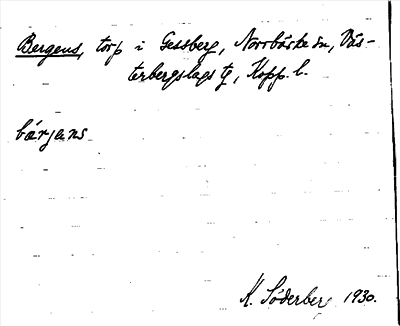 Bergens, torp i Gessberg, Norrbärke sn, Väs-
terbergslags tg, Kopp. l.
bärjans
K. Söderberg 1930.